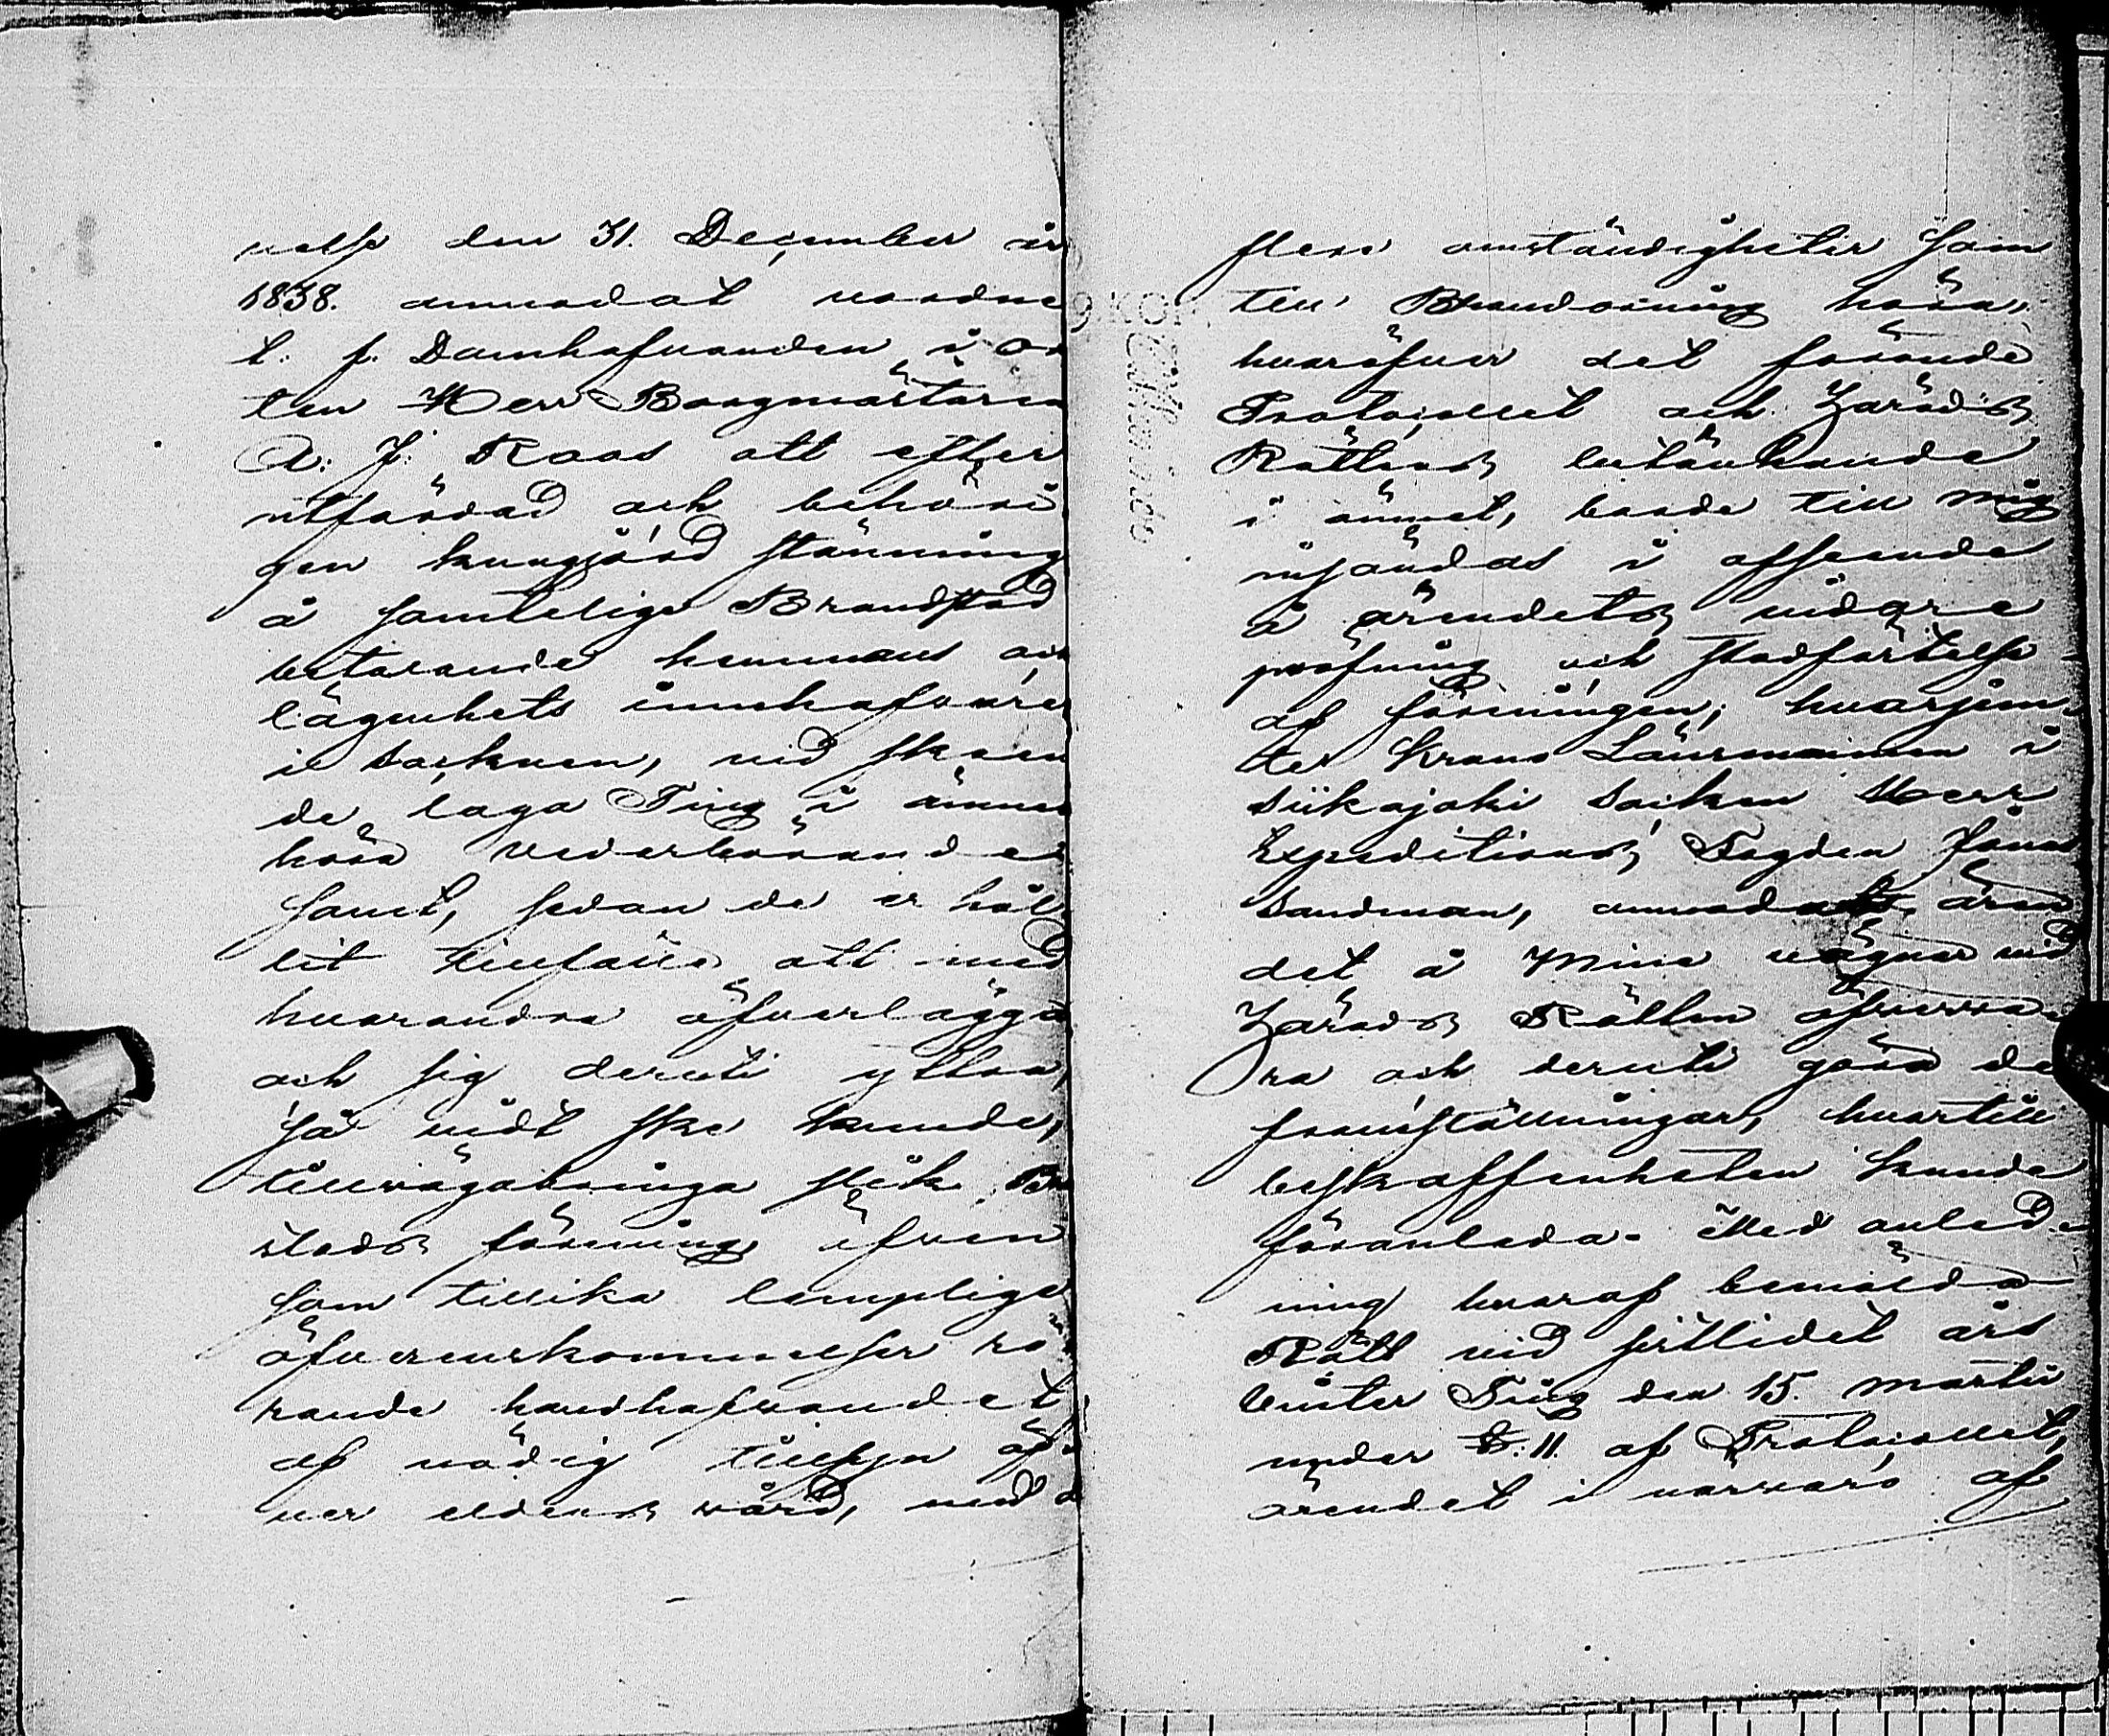 velse den 31. December år
1838. anmodat vordne
t. f. Domhafvanden i or
ten Herr Borgmästaren
A. J. Roos att efter
utfärdad och behöri
gen kungjord stämning
å samtelige Brandstod
betarande hemmans och
lägenhets innehafvare
i Socknen, vid skeen
de laga Ting i ämnet
höra vederbörandes
samt, sedan de er håll
lit tillfälle att med
hvarandra öfverlägga
och sig deruti yttra,
så vidt ske kunde,
tillvägabringa slik Bra
stods förening äfven
som tillika lämpliga
öfverenskommelser rö
rande handhafvandet
af nödig tillsyn öf
ver eldens vård, med
flere omständigheter som
till Brandordning höra,
hvaröfver det förande
Protocollet och Härads
Rättens utlåtande
i ämnet, borde till mig
insändas i afseende
å ärendets vidare
pröfning och stadfästelse
af föreningen; hvarjem-
te Krono Länsmannen i
Siikajoki Socken Herr
Expeditions Fogden Jonas
Sandman, anmodats ären
det å Mine vägnar vid
Härads Rätten öfverva-
ra och deruti göra de
framställningar, hvartill
beskaffenheten kunde
föranleda. Med anled-
ning hvaraf bemälda
Rätt vid sistlidet års
Vinter Ting den 15. Martii
under §. 11. af Protocollet,
ärendet i närvaro af